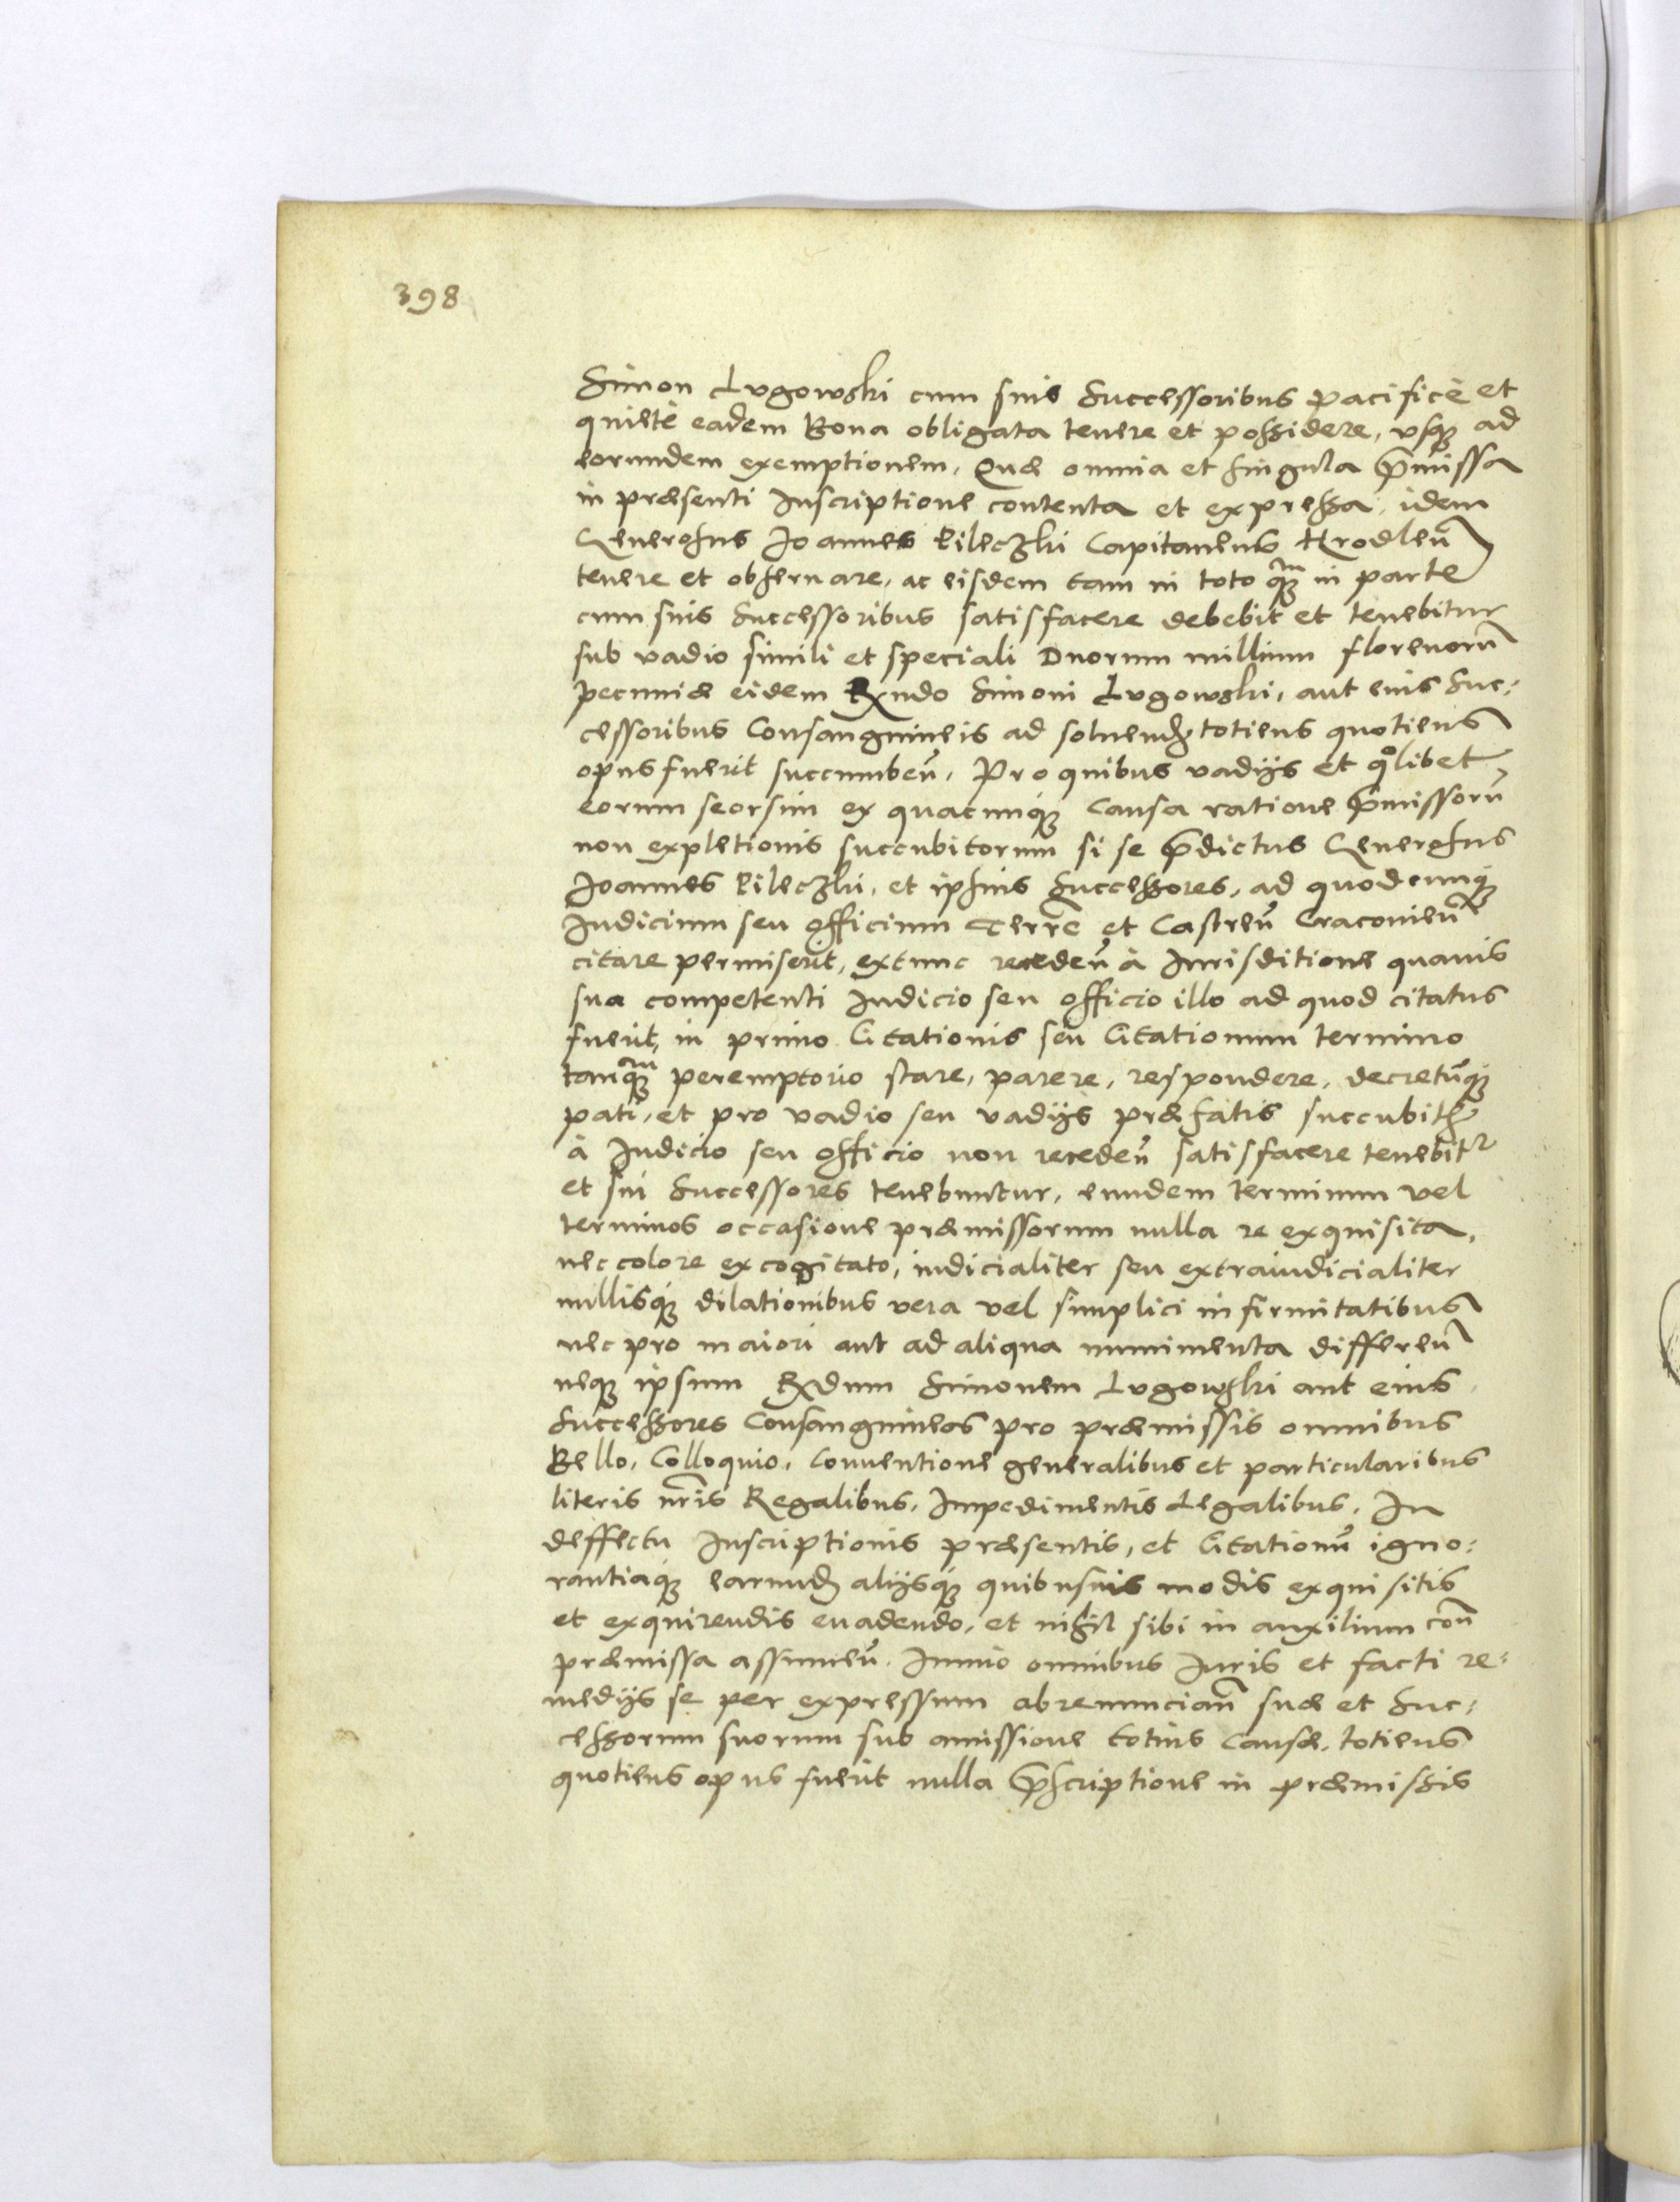 398
Simon Lvgowski cum suis Successoribus pacificè et
quietè eadem Bona obligata tenere et possidere, vsq₃ ad
eorundem exemptionem. Quæ omnia et singula p̄missa
in præsenti Inscriptione contenta et expressa, idem
Generosus Joannes Pileczki Capitaneus Hrodleñ
tenere et obseruare, ac eisdem tam in toto q̃₃ in parte
cum suis Successoribus satisfacere debebit et tenebitur
sub vadio simili et speciali Duorum millium florenorũ
pecuniæ eidem Rx̃ndo Simoni Lvgowski, aut eius Suc:
cessoribus Consanguineis ad soluend̃ totiens quotiens
opus fuerit succumbeñ. Pro quibus vadijs et qᵒlibet
eorum seorsim ex quacunq₃ Causa ratione p̄missorũ
non expletionis succubitorum si se p̄dictus Generosus
Joannes Pileczki, et ipsius Successores, ad quodcunq₃
Iudicium seu officium Terrẽ et Castreñ Cracovieñ
citare permiserit, extunc recedeñ à Iurisditione quauis
sua competenti Iudicio seu officio illo ad quod citatus
fuerit, in primo Citationis seu Citationum termino
tanq̃₃ peremptorio stare, parere, respondere, decretũq₃
pati, et pro vadio seu vadijs præfatis succubit̃
à Iudicio seu officio non recedeñ satisfacere tenebitʳ
et sui Successores tenebuntur, eundem terminum vel
terminos occasione præmissorum nulla re exquisita,
nec colore excogitato, iudicialiter seu extraiudicialiter
nullisq₃ dilationibus vera vel simplici infirmitatibus
nec pro maiori aut ad aliqua munimenta differeñ
neq₃ ipsum Rx̃dum Simonem Lvgowski aut eius
Successores Consanguineos pro præmissis omnibus
Bello, Colloquio, Conuentione generalibus et particularibus
literis nr̃is Regalibus, Impedimentis Legalibus, In
deffectu Inscriptionis præsentis, et Citationũ igno:
rantiaq₃ earund̃ alijsq₃ quibusuis modis exquisitis
et exquirendis euadendo, et nihil sibi in auxilium coñ
præmissa assumeñ. Immo omnibus Iuris et facti re:
medijs se per expressum abrenunciañ suæ et Suc:
cessorum suorum sub amissione totius Causæ, totiens
quotiens opus fuerit nulla p̄scriptione in præmissis